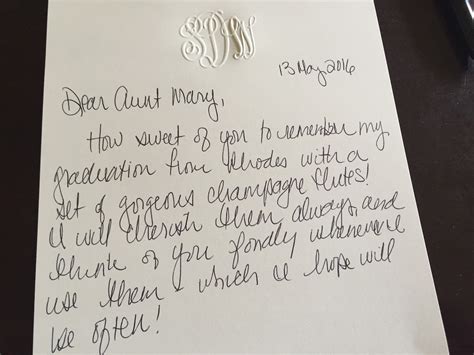 13 May 2016
Dear Aunt Mary,
How sweet of you to remember my
graduation from Rhodes with a
set of gorgeous champagne flutes!
I will cherish them always and
think of you fondly whenever I
use them - which I hope will
be often!